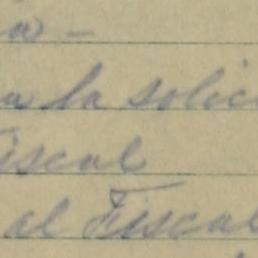 a -
a la solic
Fiscal
al Fiscal